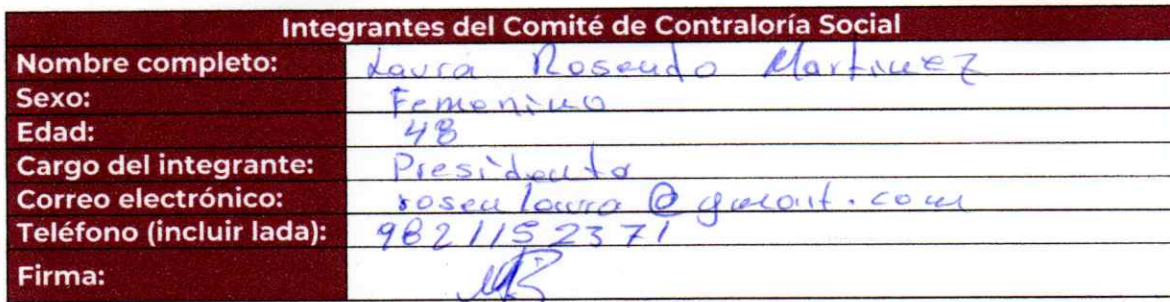 Integrantes del Comité de Contraloría Social
Nombre completo: Laura Rosendo Martinez
Sexo: Femenino
Edad: 48
Cargo del integrante: Presidenta
Correo electrónico: rosenlaura@gmail.com
Teléfono (incluir lada): 9821152371
Firma: